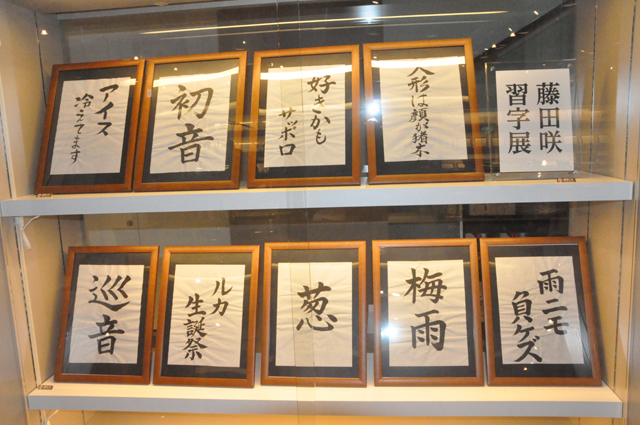 藤田咲
習字展
人形は顔が命
好きかも
サッポロ
初音
アイス
冷えてます
雨ニモ
負ケズ
梅雨
葱
ルカ
生誕祭
巡音